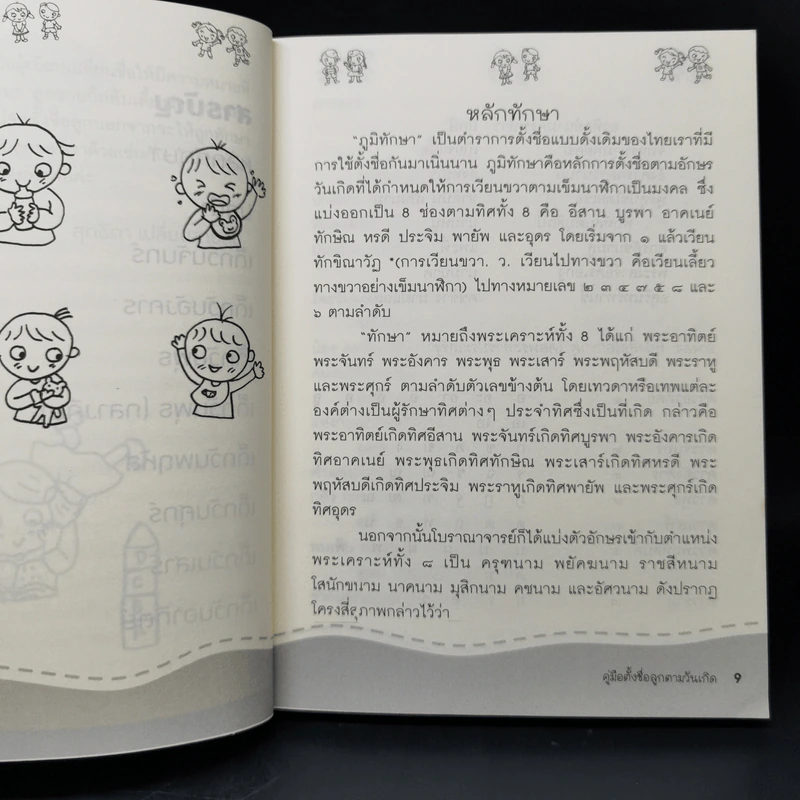 หลักทักษา
"ภูมิทักษา" เป็นตำราการตั้งชื่อแบบดั้งเดิมของไทยเราที่มี
การใช้ตั้งชื่อกันมาเนิ่นนาน ภูมิทักษาคือหลักการตั้งชื่อตามอักษร
วันเกิดที่ได้กำหนดให้การเวียนขวาตามเข็มนาฬิกาเป็นมงคล ซึ่ง
แบ่งออกเป็น 8 ช่องตามทิศทั้ง 8 คือ อีสาน บูรพา อาคเนย์
ทักษิณ หรดี ประจิม พายัพ และอุดร โดยเริ่มจาก ๑ แล้วเวียน
ทักขิณาวัฏ *(การเวียนขวา. ว. เวียนไปทางขวา คือเวียนเลี้ยว
ทางขวาอย่างเข็มนาฬิกา) ไปทางหมายเลข ๒ ๓ ๔ ๗ ๕ ๘ และ
๖ ตามลำดับ
"ทักษา" หมายถึงพระเคราะห์ทั้ง 8 ได้แก่ พระอาทิตย์
พระจันทร์ พระอังคาร พระพุธ พระเสาร์ พระพฤหัสบดี พระราหู
และพระศุกร์ ตามลำดับตัวเลขข้างต้น โดยเทวดาหรือเทพแต่ละ
องค์ต่างเป็นผู้รักษาทิศต่างๆ ประจำทิศซึ่งเป็นที่เกิด กล่าวคือ
พระอาทิตย์เกิดทิศอีสาน พระจันทร์เกิดทิศบูรพา พระอังคารเกิด
ทิศอาคเนย์ พระพุธเกิดทิศทักษิณ พระเสาร์เกิดทิศหรดี พระ
พฤหัสบดีเกิดทิศประจิม พระราหูเกิดทิศพายัพ และพระศุกร์เกิด
ทิศอุดร
นอกจากนั้นโบราณาจารย์ก็ได้แบ่งตัวอักษรเข้ากับตำแหน่ง
พระเคราะห์ทั้ง ๘ เป็น ครุฑนาม พยัคฆนาม ราชสีหนาม
โสนักขนาม นาคนาม มุสิกนาม คชนาม และอัศวนาม ดังปรากฏ
โครงสี่สุภาพกล่าวไว้ว่า
คู่มือตั้งชื่อลูกตามวันเกิด 9